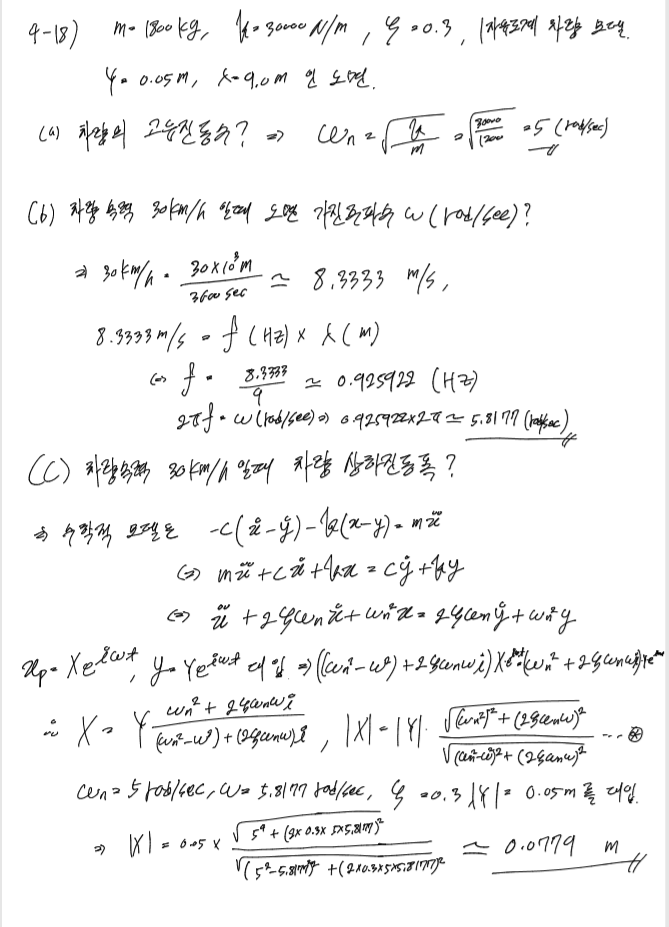 4-18) m = 1800 kg, k = 30000 N/m, ζ = 0.3, 1자유도계 차량 모델.
Y = 0.05m, λ = 9.0m 인 도면.
(a) 차량의 고유진동수? ⇒ ωn = √(k/m) = √(30000/1200) = 5 (rad/sec)
(b) 차량 속력 30km/h 일때 도면 가진주파수 ω (rad/sec)?
⇒ 30km/h = 30×10³m / 3600 sec ≃ 8.3333 m/s,
8.3333 m/s = f (Hz) × λ (m)
⇔ f = 8.3333/9 ≃ 0.925922 (Hz)
2πf = ω (rad/sec) ⇒ 0.925922×2π ≃ 5.8177 (rad/sec)
(C) 차량속력 30km/h 일때 차량 상하진동폭?
⇒ 수학적 모델은 -c(ẋ-ẏ)-k(x-y) = mẍ
⇔ mẍ + cẋ + kx = cẏ + ky
⇔ ẍ + 2ζωnẋ + ωn²x = 2ζωnẏ + ωn²y
xp = Xe^{iωt}, y = Ye^{iωt} 대입 ⇒ ((ωn²-ω²)+2ζωnωi)Xe^{iωt} = (ωn²+2ζωnωi)Ye^{iωt}
∴ X = Y (ωn²+2ζωnωi) / ((ωn²-ω²)+(2ζωnω)i), |X| = |Y|·√((ωn²)²+(2ζωnω)²) / √((ωn²-ω²)²+(2ζωnω)²) ...⊛
ωn = 5 rad/sec, ω = 5.8177 rad/sec, ζ = 0.3 |Y| = 0.05m 를 대입.
⇒ |X| = 0.05 × √(5⁴+(2×0.3×5×5.8177)²) / √((5²-5.8177²)²+(2×0.3×5×5.8177)²) ≃ 0.0779 m